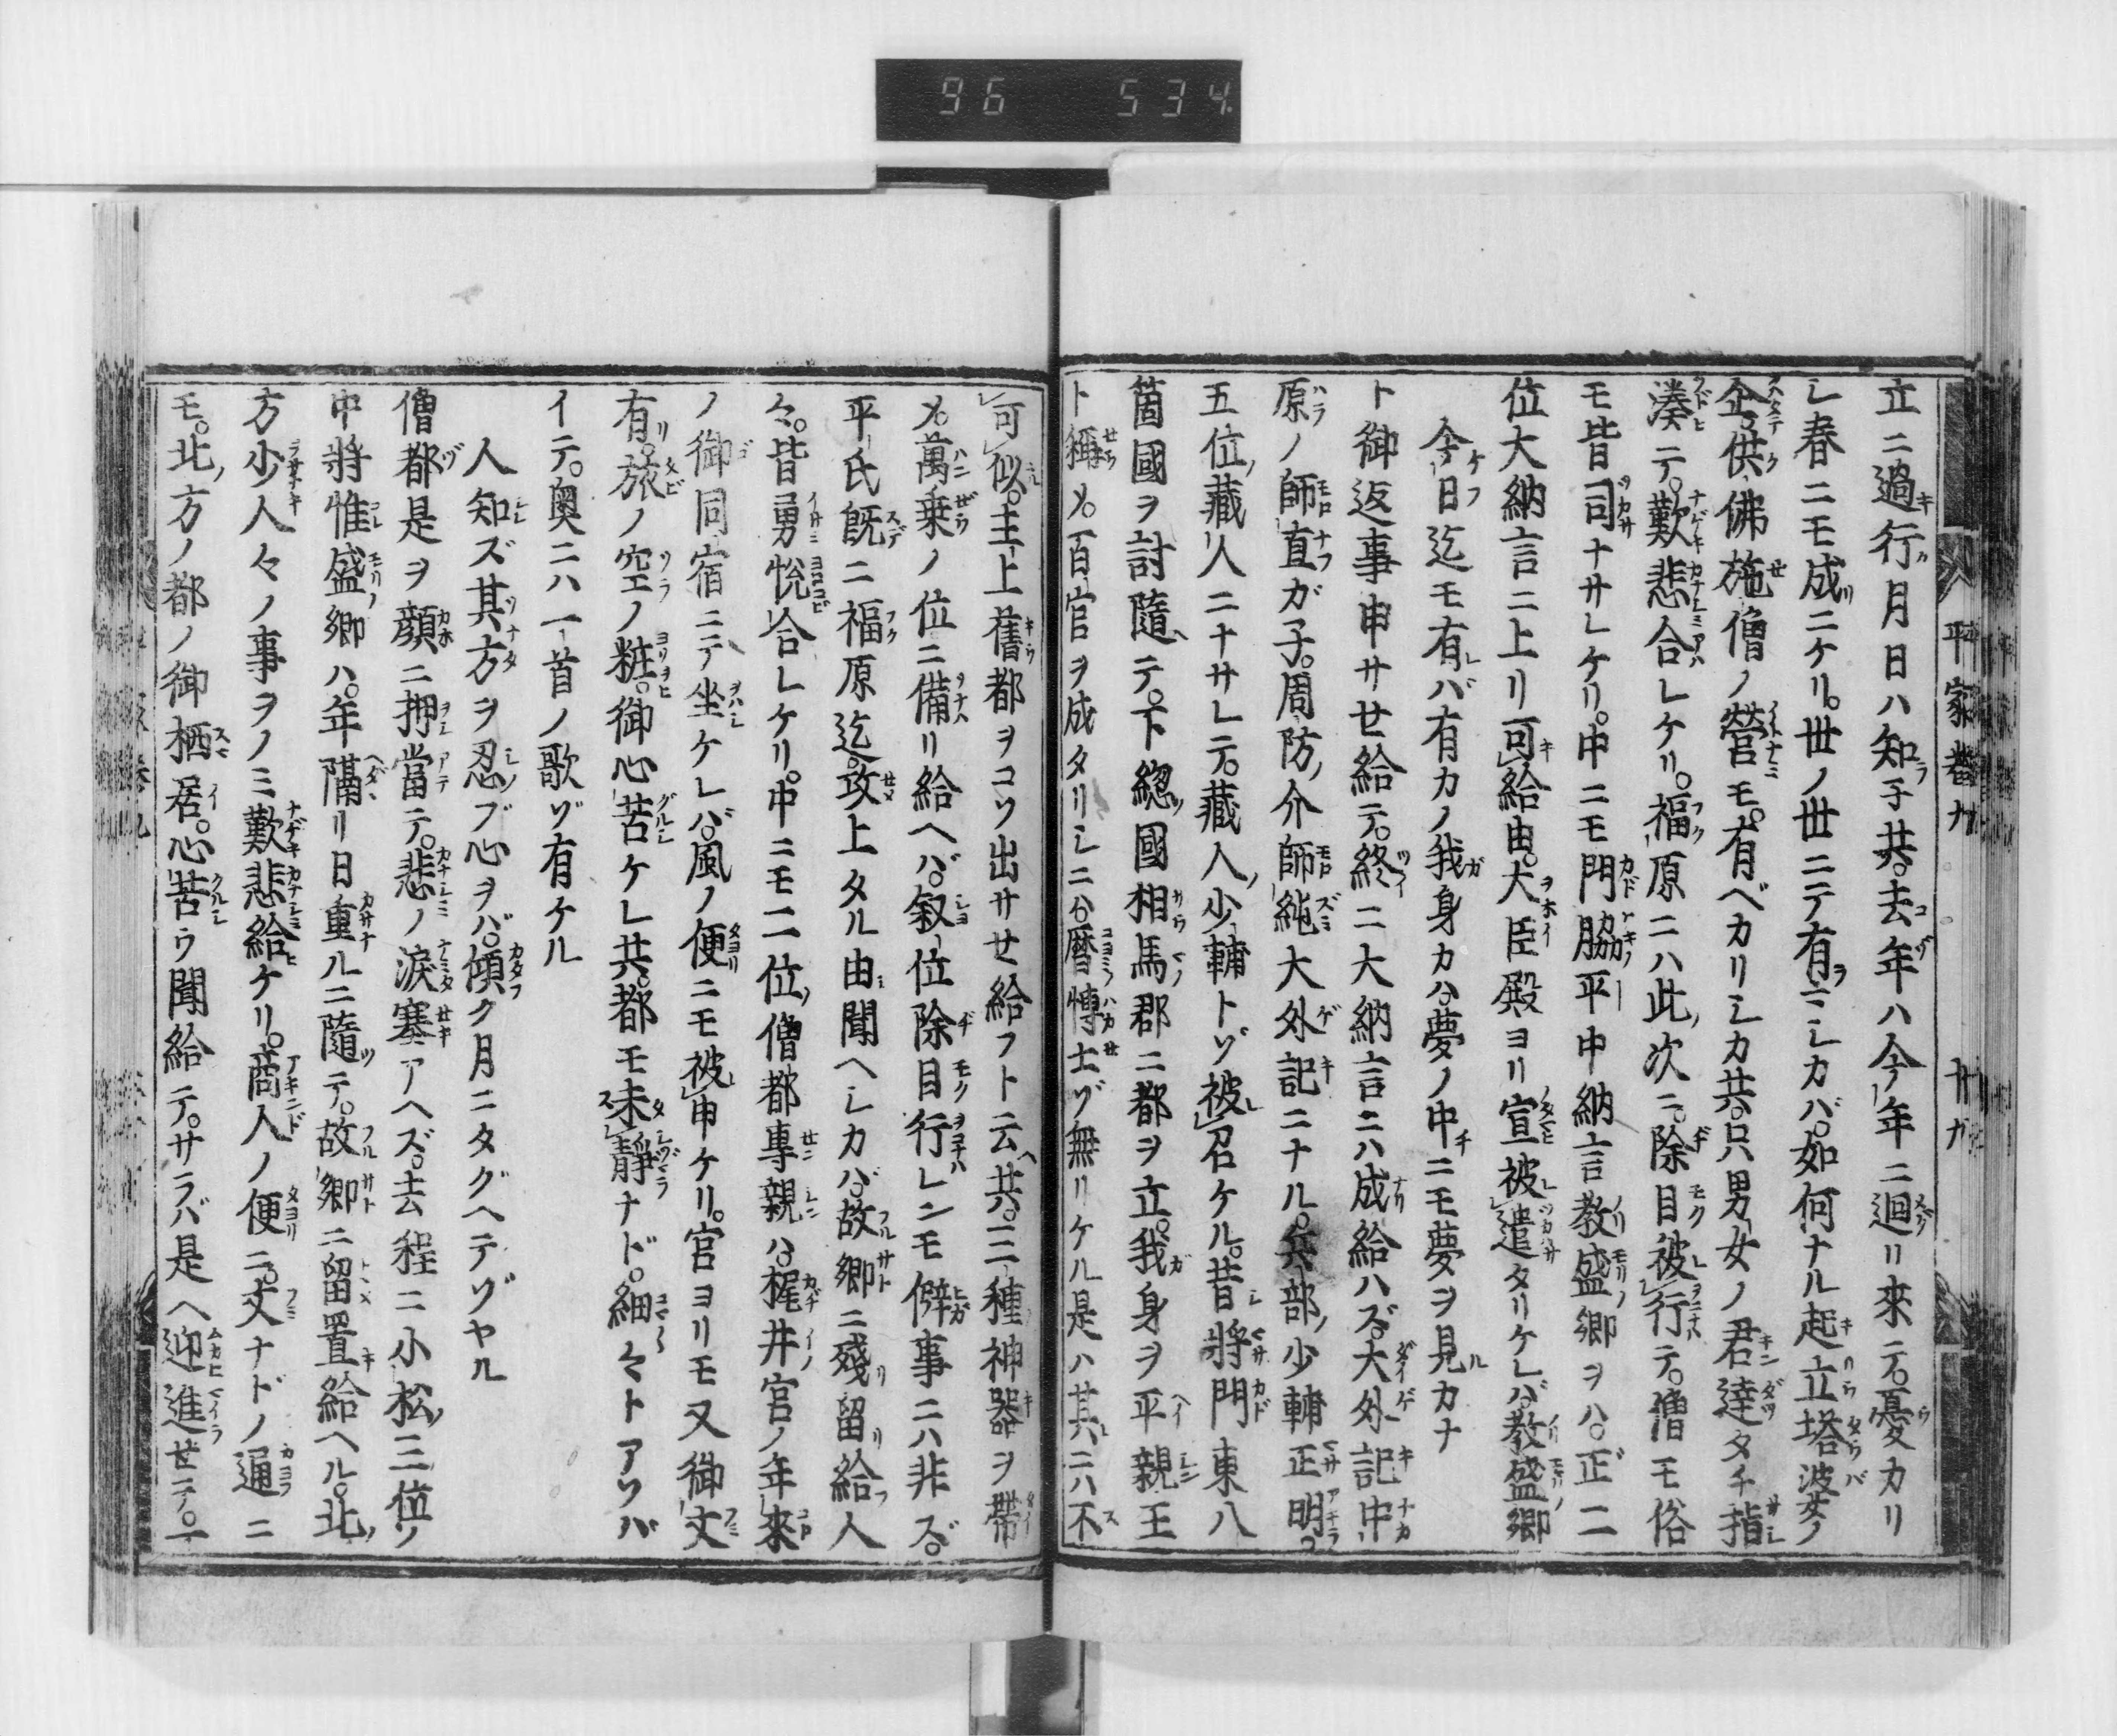 96 534
平家巻九 廿九
立ニ過行月日ハ知子共。去年ハ今年ニ廻リ來テ。憂カリ
シ春ニモ成ニケリ。世ノ世ニテ有ニシカバ。如何ナル起立塔波ノ
企。供佛施僧ノ營モ。有ベカリシカ共。只男女ノ君達タチ指
湊テ。歎悲合レケリ。福原ニハ此次ニ。除目被行テ。僧モ俗
モ皆司ナサレケリ。中ニモ門脇平中納言教盛卿ヲハ。正二
位大納言ニ上リ可給由。大臣殿ヨリ宣被遣タリケレバ。教盛卿
今日迄モ有バ有カノ我身カハ夢ノ中ニモ夢ヲ見カナ
ト御返事申サセ給テ。終ニ大納言ニハ成給ハズ。大外記中
原ノ師直ガ子。周防介師純大外記ニナル。兵部少輔正明
五位藏人ニナサレテ。藏人少輔トゾ被召ケル。昔將門東八
箇國ヲ討隨テ。下總國相馬郡ニ都ヲ立。我身ヲ平親王
ト稱乄。百官ヲ成タリシニハ。暦愽士ゾ無リケル是ハ其ニハ不
可似。主上舊都ヲコソ出サセ給フト云共。三種神器ヲ帶
乄。萬乗ノ位ニ備リ給ヘバ。叙位除目行レンモ僻事ニハ非ズ。
平氏既ニ福原迄。攻上タル由聞ヘシカバ。故郷ニ殘留給人
々。皆勇悦合レケリ。中ニモ二位僧都專親ハ。梶井宮ノ年來
ノ御同宿ニテ坐ケレバ。風ノ便ニモ被申ケリ。宮ヨリモ又御文
有。旅ノ空ノ粧。御心苦ケレ共。都モ未靜ナド。細々トアソバ
イテ。奥ニハ一首ノ歌ゾ有ケル
人知ズ其方ヲ忍ブ心ヲバ。傾ク月ニタグヘテゾヤル
僧都是ヲ顔ニ押當テ。悲ノ涙塞アヘズ。去程ニ小松三位ノ
中將惟盛卿ハ。年隔リ日重ルニ隨テ。故郷ニ留置給ヘル。北
方少人々ノ事ヲノミ歎悲給ケリ。商人ノ便ニ。文ナドノ通ニ
モ。北方ノ都ノ御栖居。心苦ウ聞給テ。サラバ是ヘ迎進セテ。一